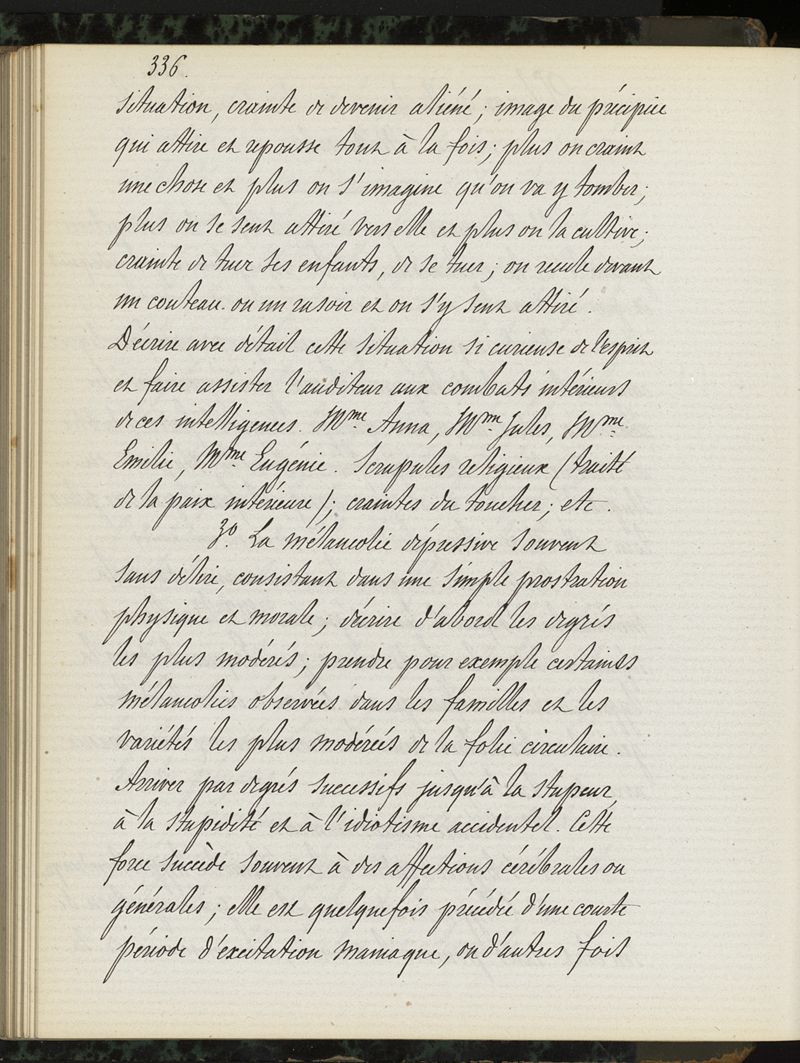 336.
situation, crainte de devenir aliéné; image du précipice
qui attire et repousse tout à la fois; plus on craint
une chose et plus on s'imagine qu'on va y tomber;
plus on se sent attiré vers elle et plus on la cultive;
crainte de tuer ses enfants, de se tuer; on recule devant
un couteau ou un rasoir et on s'y sent attiré.
Décrire avec détail cette situation si curieuse de l'esprit
et faire assister l'auditeur aux combats intérieurs
de ces intelligences. Mme Anna, Mme Jules, Mme
Emilie, Mme Eugénie. Scrupules religieux (traité
de la paix intérieure); craintes du toucher; etc.
3o. La mélancolie dépressive souvent
sans délire, consistant dans une simple prostration
physique et morale; décrire d'abord les degrés
les plus modérés; prendre pour exemple certaines
mélancolies observées dans les familles et les
variétés les plus modérées de la folie circulaire.
Arriver par degrés successifs jusqu'à la stupeur,
à la stupidité et à l'idiotisme accidentel. Cette
force succède souvent à des affections cérébrales ou
générales; elle est quelquefois précédée d'une courte
période d'excitation maniaque, ou d'autres fois